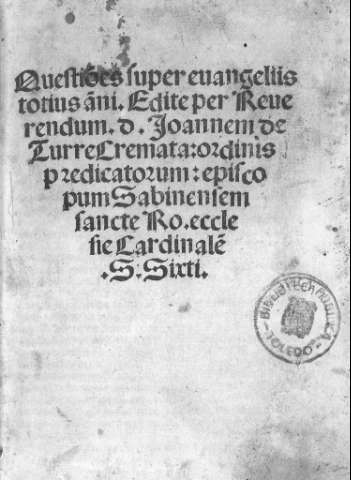 Questiões super euangeliis
totius āni. Edite per Reue
rendum. d. Joannem de
TurreCremata: ordinis
predicatorum: episco
pum Sabinensem
sancte Ro. eccle
sie Cardinalē
.S. Sixti.
BIBLIOTECA PUBLICA
TOLEDO